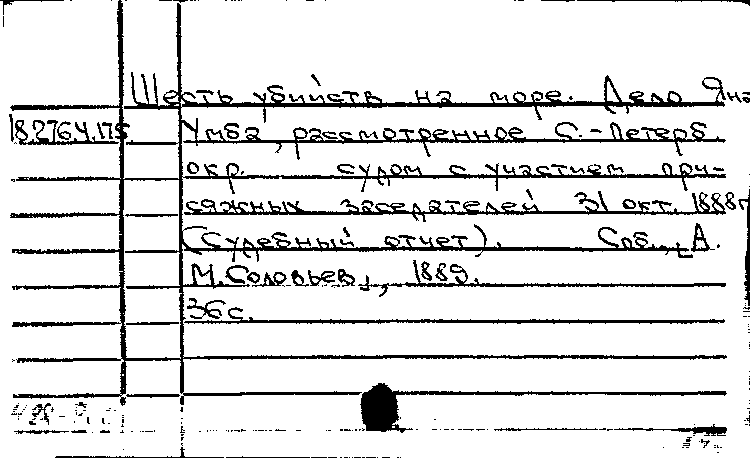 Шесть убийств на море. Дело Яна
18.276.4.175 Умба, рассмотренное С.-Петерб.
окр. судом с участием при-
сяжных заседателей 31 окт. 1888 г.
(Судебный отчет). Спб., [А.
М. Соловьев], 1889.
36 с.